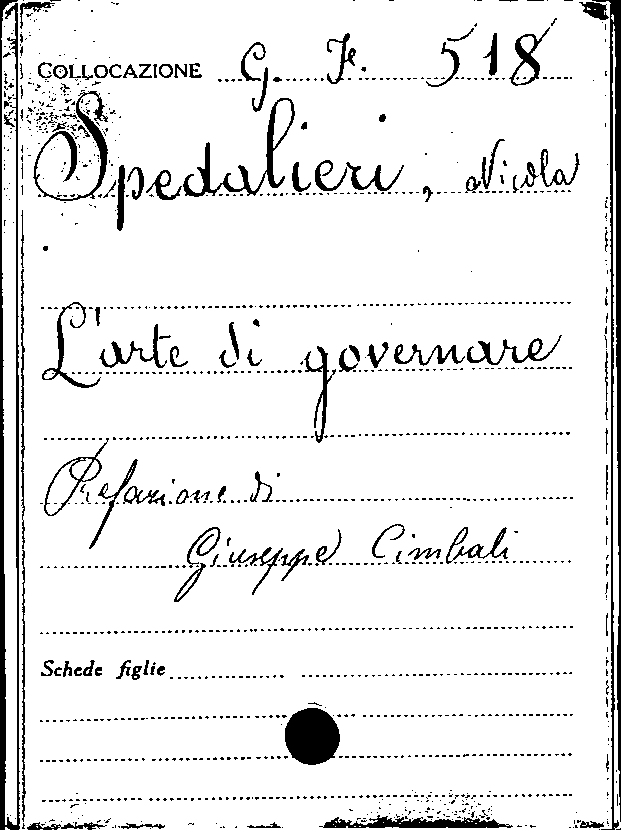 COLLOCAZIONE G. F. 518
Spedalieri, Nicola
L'arte di governare
Prefazione di
Giuseppe Cimbali
Schede figlie